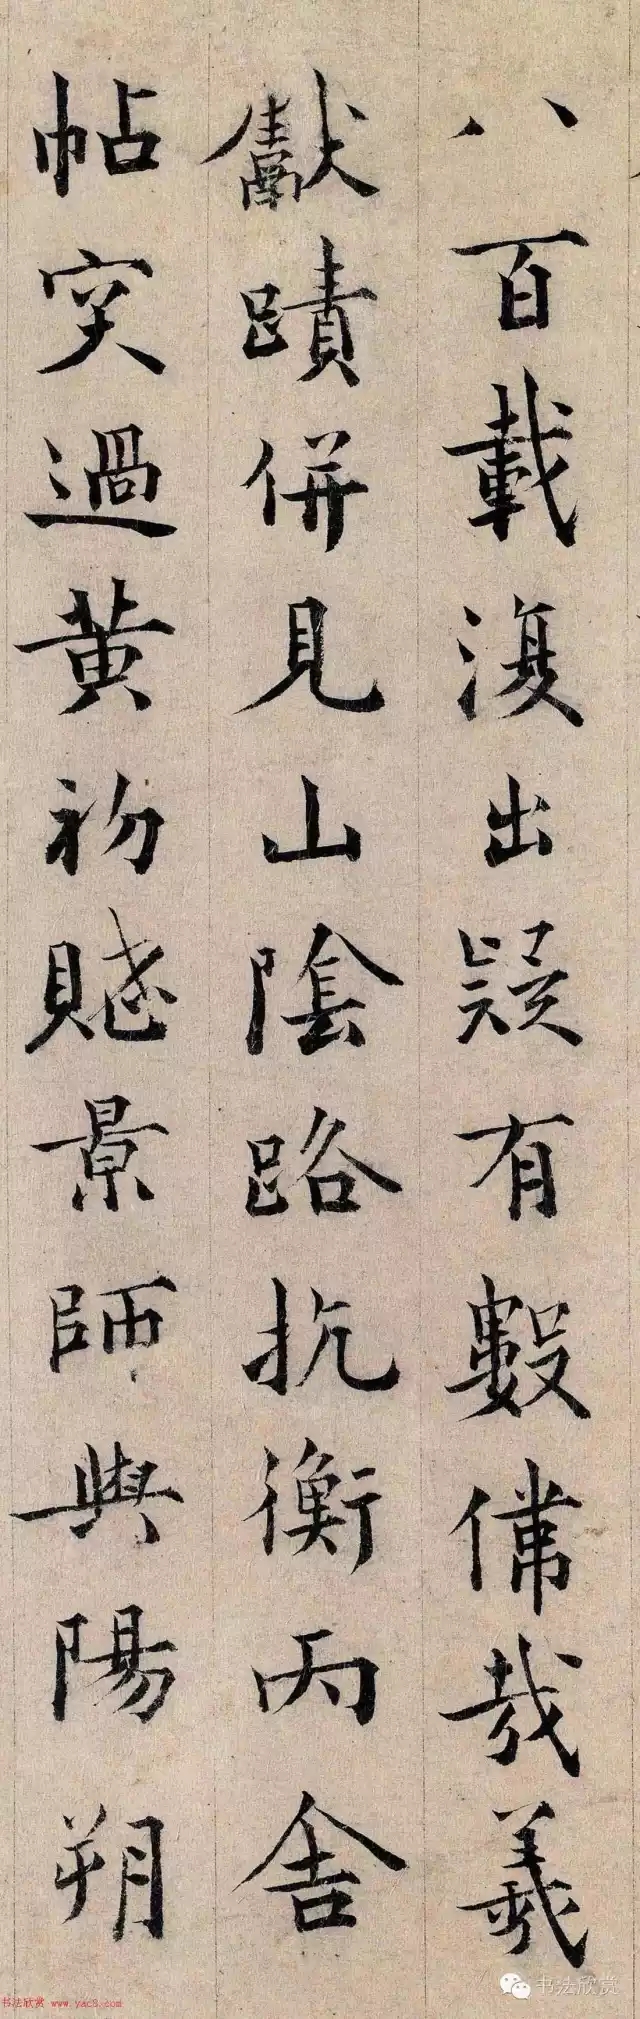 八百載復出疑有數偉哉羲
獻蹟併見山陰路抗衡丙舍
帖突過黃初賤景師與陽朔
书法欣赏
书法欣赏 www.yac8.com